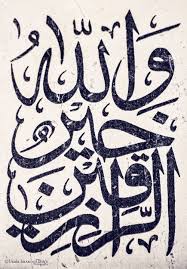 وَاللّٰهُ
خَيْرُ
الرَّازِقِينَ